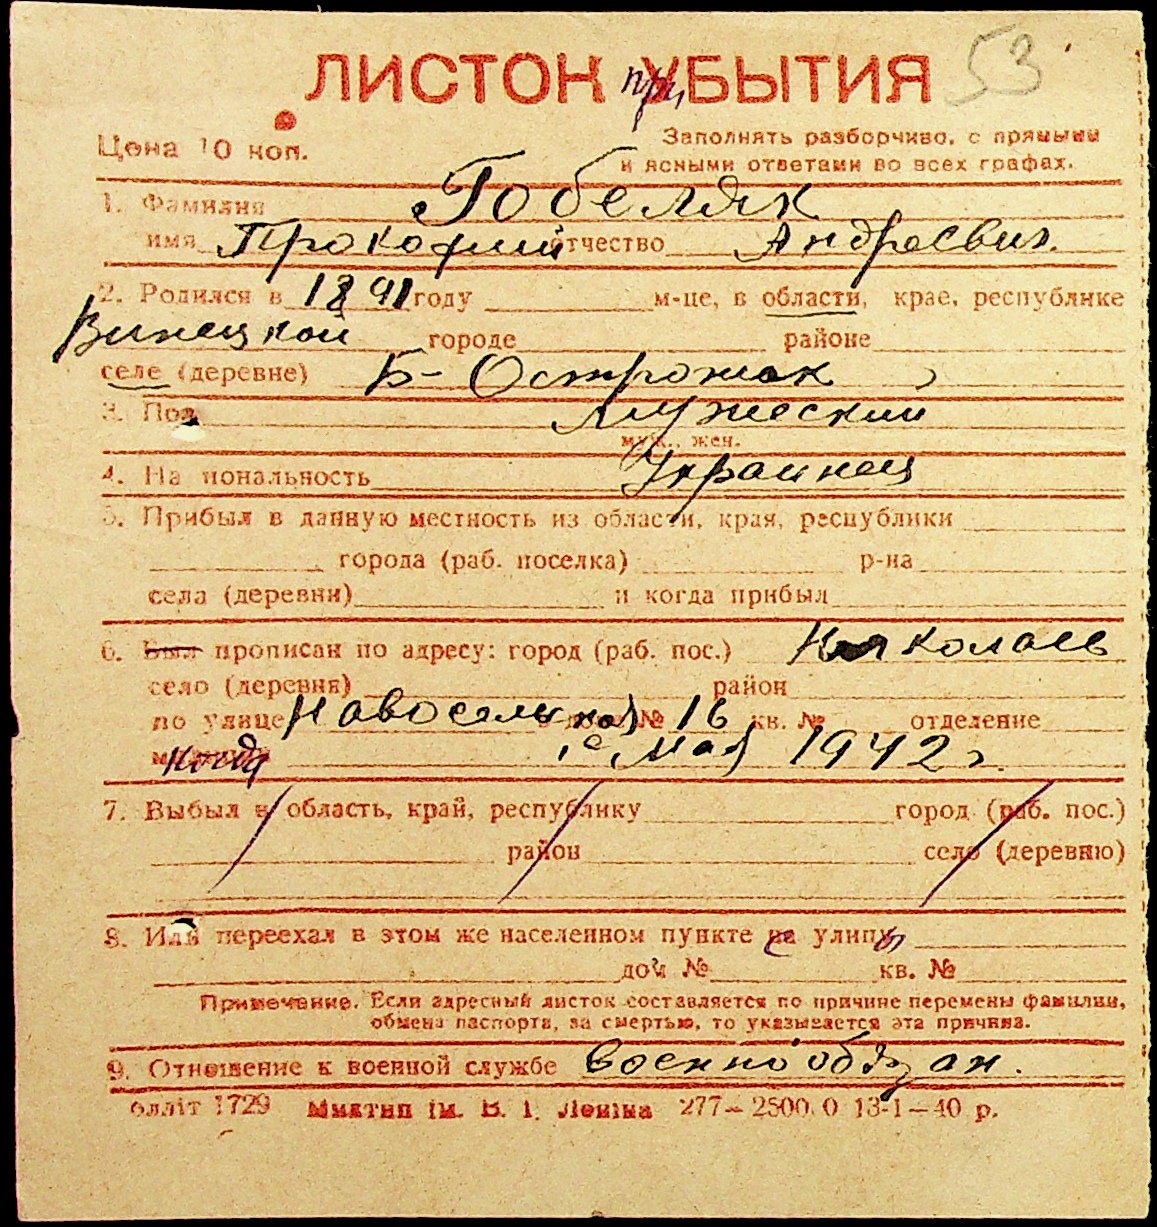 ЛИСТОК при УБЫТИЯ 53
Цена 10 коп.
Заполнять разборчиво, с прямыми
и ясными ответами во всех графах.
1. Фамилия Гобеляк
имя Прокофий отчество Андреевич.
2. Родился в 1891 году м-це, в области, крае, республике
Винецкой городе районе
селе (деревне) Б- Острожок
3. Пол Мужеский
муж., жен.
4. Национальность Украинец
5. Прибыл в данную местность из области, края, республики
города (раб. поселка) р-на
села (деревни) и когда прибыл
6. Был прописан по адресу: город (раб. пос.) Николаев
село (деревня) район
по улице Новосельская № 16 кв. № отделение
когда 1е Мая 1942 г.
7. Выбыл в область, край, республику город (раб. пос.)
район село (деревню)
8. Или переехал в этом же населенном пункте с улицы
дом № кв. №
Примечание. Если адресный листок составляется по причине перемены фамилии,
обмена паспорта, за смертью, то указывается эта причина.
9. Отношение к военной службе военнообязан.
блліт 1729 ім. В. І. Леніна 277—2500.0 13-1—40 р.